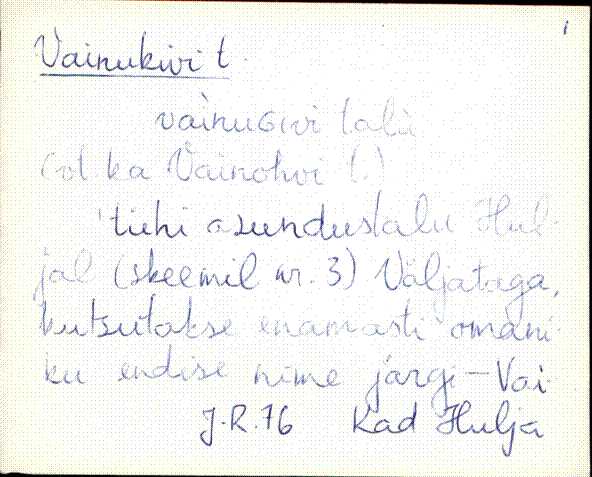 1
Vainukivi t.
vàinuGivi talù
(vt ka Vainohvi t.)
'tühi asundustalu Hul-
jal (skeemil nr. 3) Väljataga,
kutsutakse enamasti omani-
ku endise nime järgi – Vai-
J.R. 76 Kad Hulja